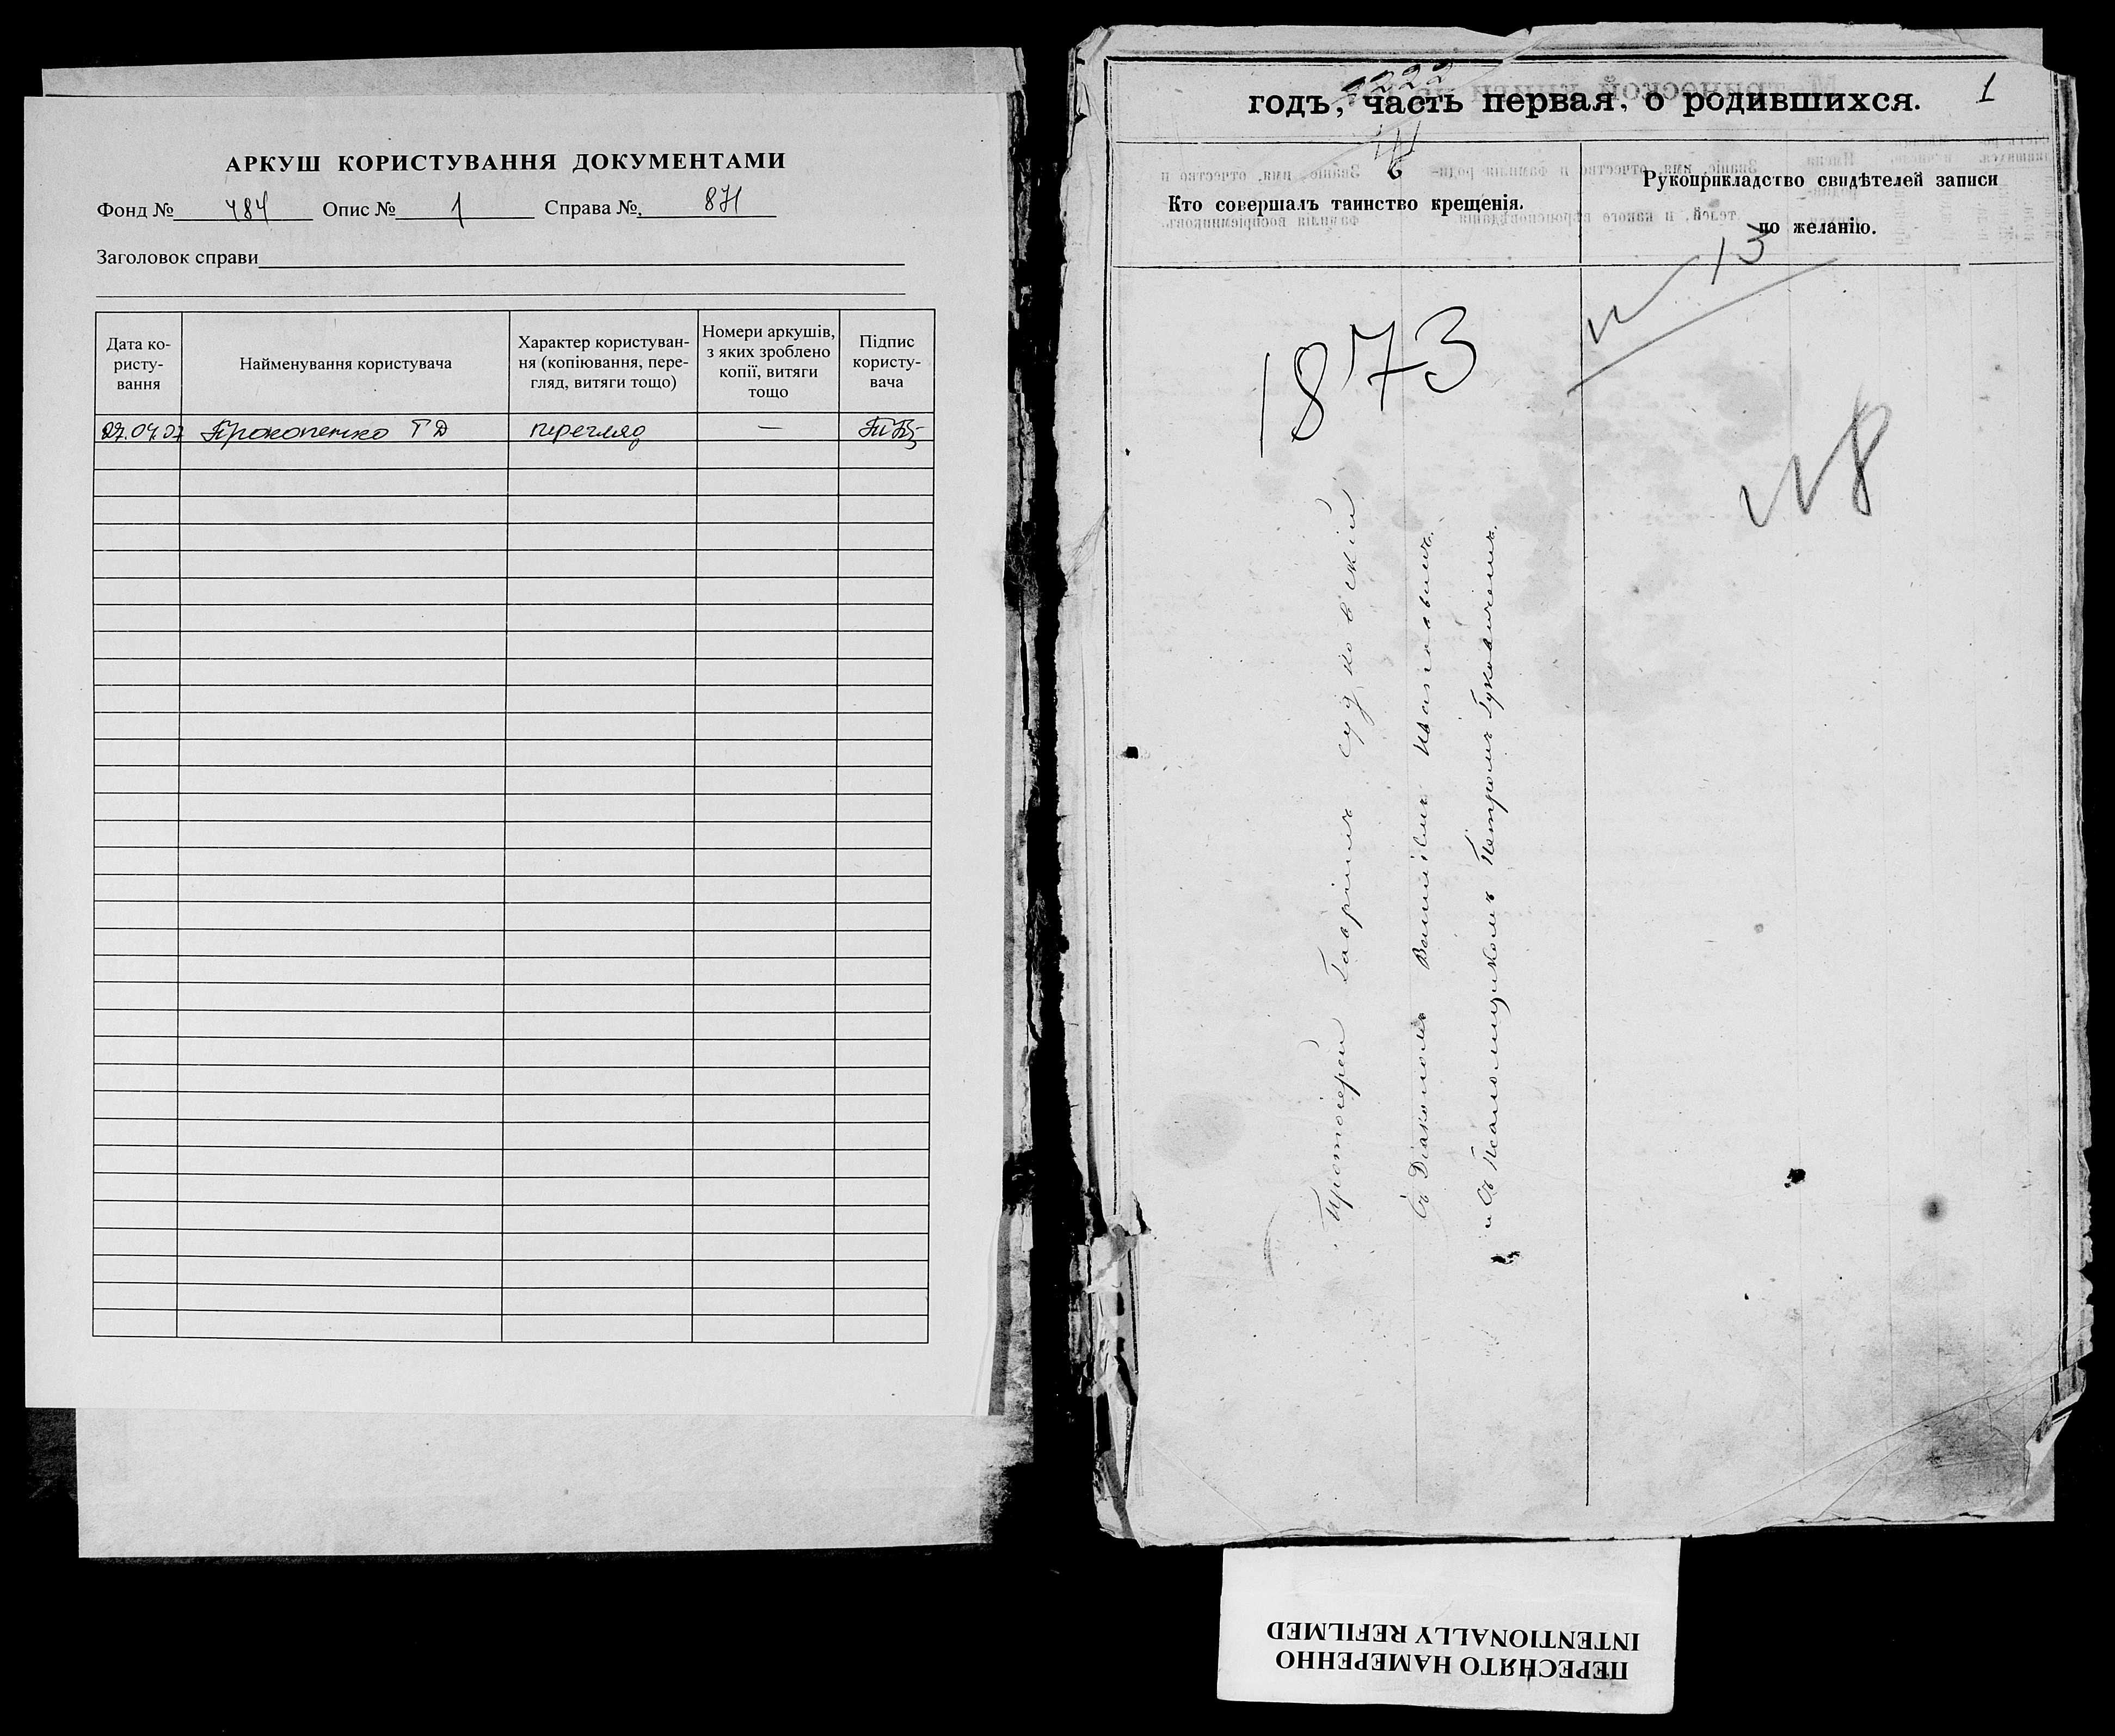 АРКУШ КОРИСТУВАННЯ ДОКУМЕНТАМИ
Фонд № 484 Опис № 1 Справа №
Заголовок справи
Дата ко-
ристу-
вання
Найменування користувача
Характер користуван-
ня (копіювання, пере-
гляд, витяги тощо)
Номери аркушів,
з яких зроблено
копії, витяги
тощо
Підпис
користу-
вача
27.04.07 Прокопенко Т Д перегляд —
годъ, часть первая, о родившихся.
1
6
Кто совершалъ таинство крещенія.
Рукоприкладство свидѣтелей записи
по желанію.
№ 13
1873
№ 8
Протоіерей Гавріилъ Судковскій
Съ Діакономъ
и Съ Псаломщикомъ Петромъ
ПЕРЕСНЯТО НАМЕРЕННО
INTENTIONALLY REFILMED